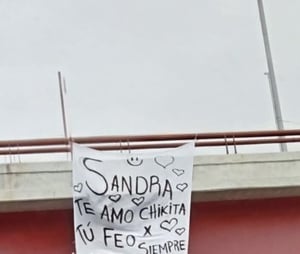 SANDRA
TE AMO CHIKITA
TÚ FEO X
SIEMPRE